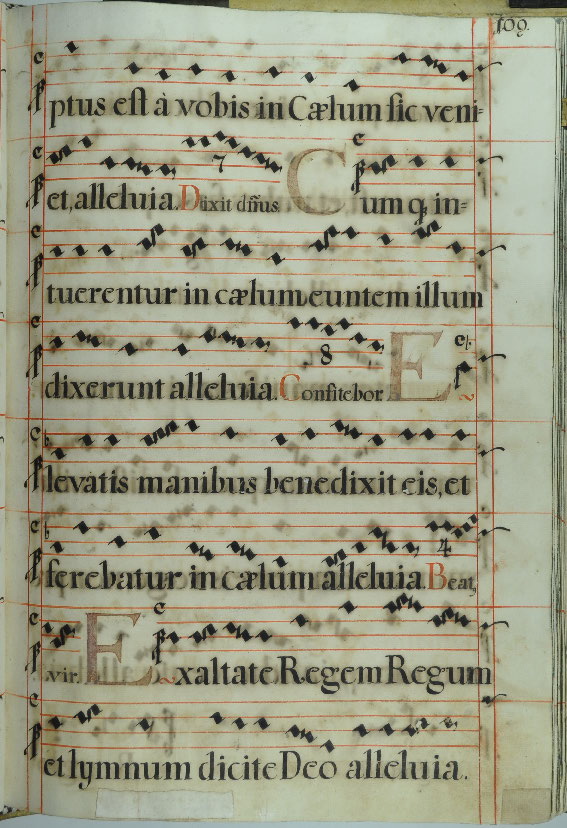 109.
ptus est à vobis in Cælum sic veni-
et, alleluia. Dixit dñus. Cumq, in-
7
tuerentur in cælum euntem illum
dixerunt alleluia. Confitebor E
8
levatis manibus benedixit eis, et
ferebatur in cælum alleluia. Beat,
4
vir. Exaltate Regem Regum
et hymnum dicite Deo alleluia.